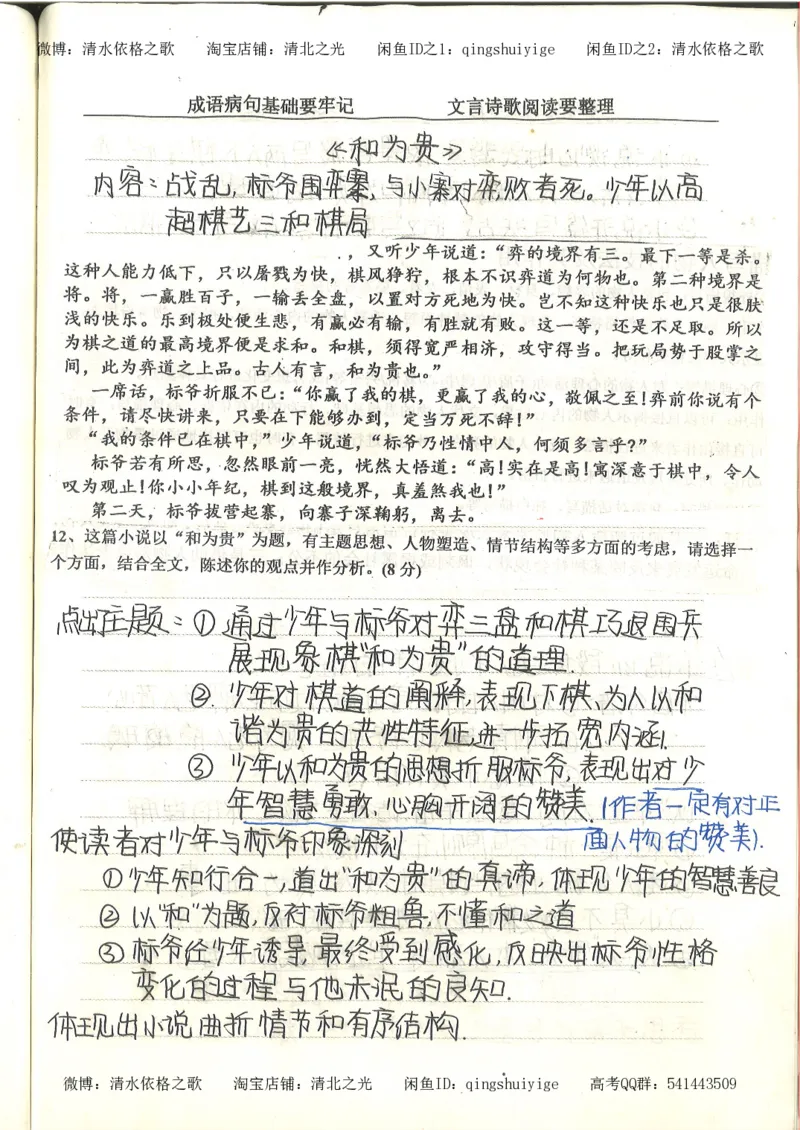 微博：清水依格之歌 淘宝店铺：清北之光 闲鱼ID之1：qingshuiyige 闲鱼ID之2：清水依格之歌
成语病句基础要牢记 文言诗歌阅读要整理
《和为贵》
内容：战乱，标爷围弈寨，与小寨对弈，败者死。少年以高
超棋艺三和棋局
，又听少年说道：“弈的境界有三。最下一等是杀。
这种人能力低下，只以屠戮为快，棋风狰狞，根本不识弈道为何物也。第二种境界是
将。将，一赢胜百子，一输丢全盘，以置对方死地为快。岂不知这种快乐也只是很肤
浅的快乐。乐到极处便生悲，有赢必有输，有胜就有败。这一等，还是不足取。所以
为棋之道的最高境界便是求和。和棋，须得宽严相济，攻守得当。把玩局势于股掌之
间，此为弈道之上品。古人有言，和为贵也。”
一席话，标爷折服不已：“你赢了我的棋，更赢了我的心，敬佩之至！弈前你说有个
条件，请尽快讲来，只要在下能够办到，定当万死不辞！”
“我的条件已在棋中，”少年说道，“标爷乃性情中人，何须多言乎？”
标爷若有所思，忽然眼前一亮，恍然大悟道：“高！实在是高！寓深意于棋中，令人
叹为观止！你小小年纪，棋到这般境界，真羞煞我也！”
第二天，标爷拔营起寨，向寨子深鞠躬，离去。
12、这篇小说以“和为贵”为题，有主题思想、人物塑造、情节结构等多方面的考虑，请选择一
个方面，结合全文，陈述你的观点并作分析。(8 分)
点出主题：①通过少年与标爷对弈三盘和棋巧退围兵
展现象棋“和为贵”的道理.
②. 少年对棋道的阐释，表现下棋、为人以和
谐为贵的共性特征，进一步拓宽内涵.
③ 少年以和为贵的思想折服标爷，表现出对少
年智慧勇敢、心胸开阔的赞美.（作者一定有对正
面人物的赞美）.
使读者对少年与标爷印象深刻
①少年知行合一，道出“和为贵”的真谛，体现少年的智慧善良
② 以“和”为题，反衬标爷粗鲁，不懂和之道
③ 标爷经少年诱导，最终受到感化，反映出标爷性格
变化的过程与他未泯的良知.
体现出小说曲折情节和有序结构.
微博：清水依格之歌 淘宝店铺：清北之光 闲鱼ID：qingshuiyige 高考QQ群：541443509